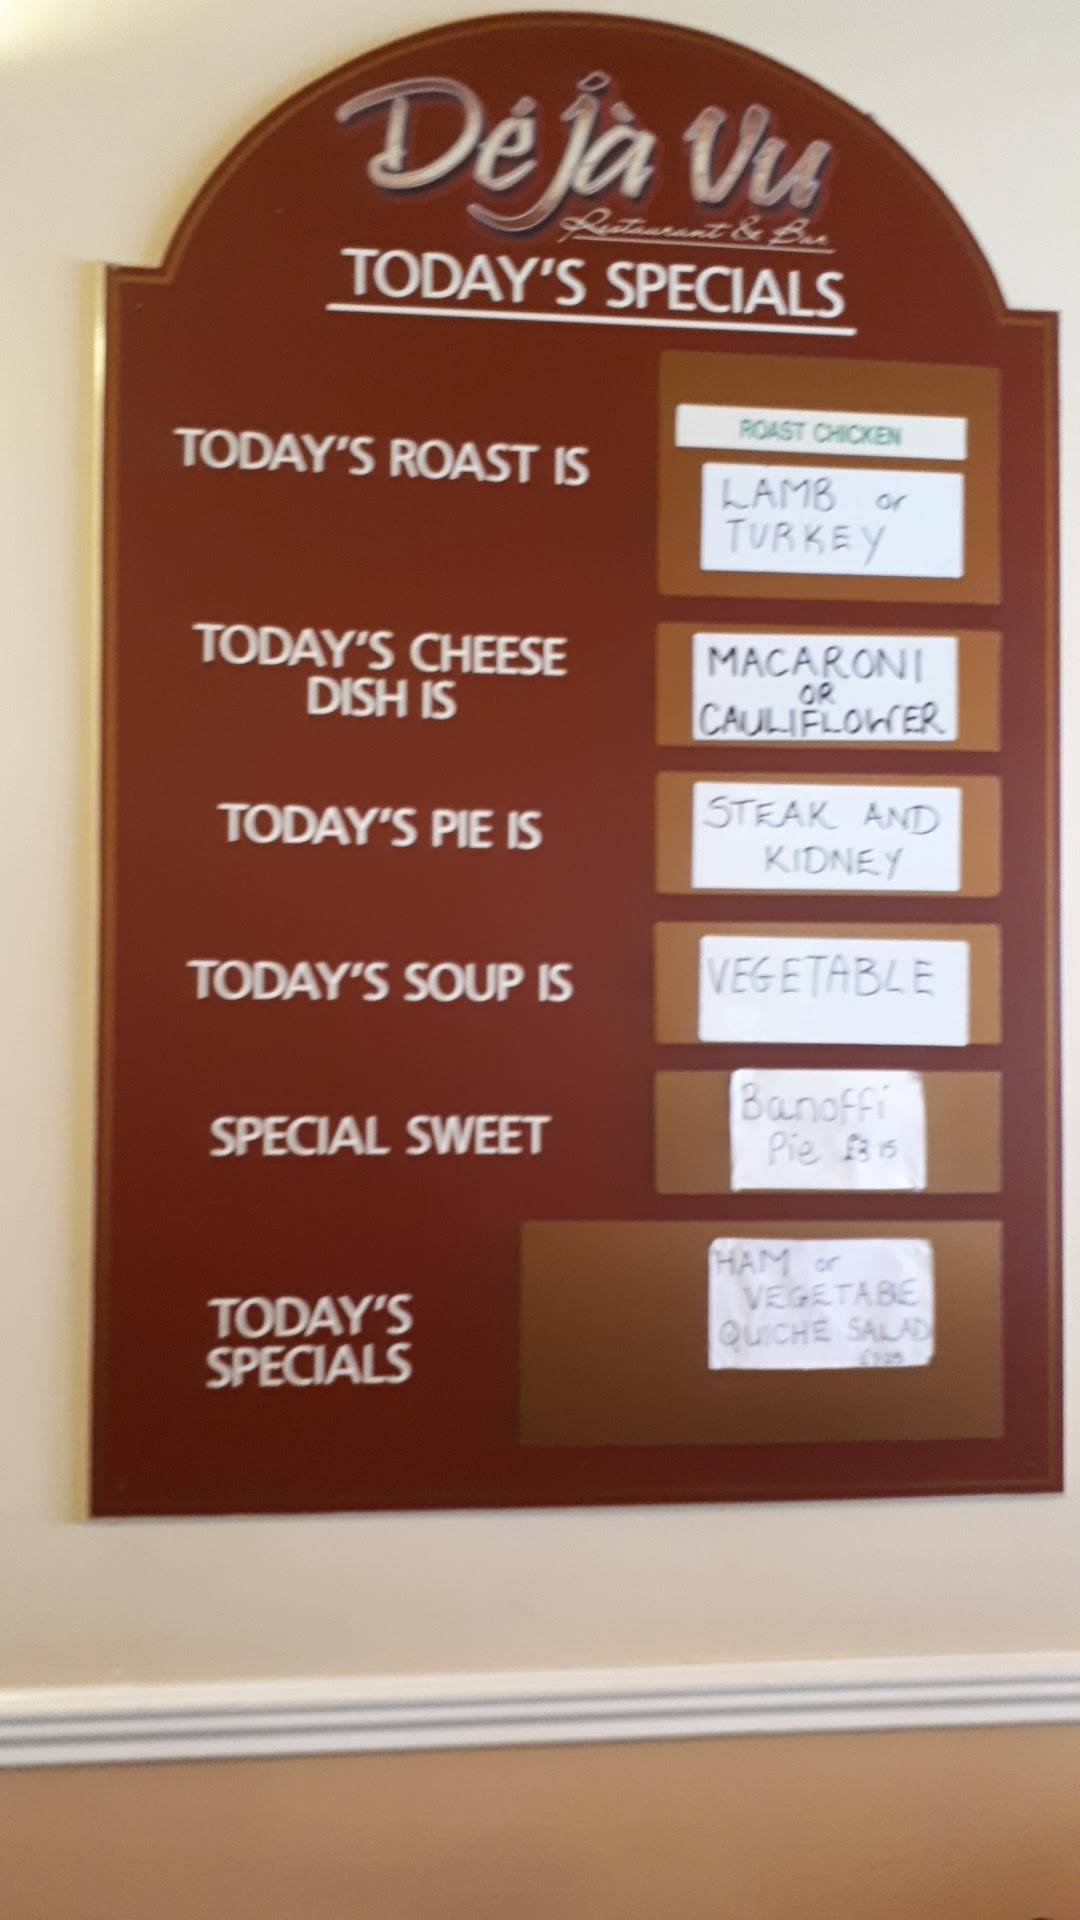 Déjà Vu
Restaurant & Bar
TODAY'S SPECIALS
TODAY'S ROAST IS
ROAST CHICKEN
LAMB or
TURKEY
TODAY'S CHEESE
DISH IS
MACARONI
OR
CAULIFLOWER
TODAY'S PIE IS
STEAK AND
KIDNEY
TODAY'S SOUP IS
VEGETABLE
SPECIAL SWEET
Banoffi
Pie £3.15
TODAY'S
SPECIALS
HAM or
VEGETABLE
QUICHE SALAD